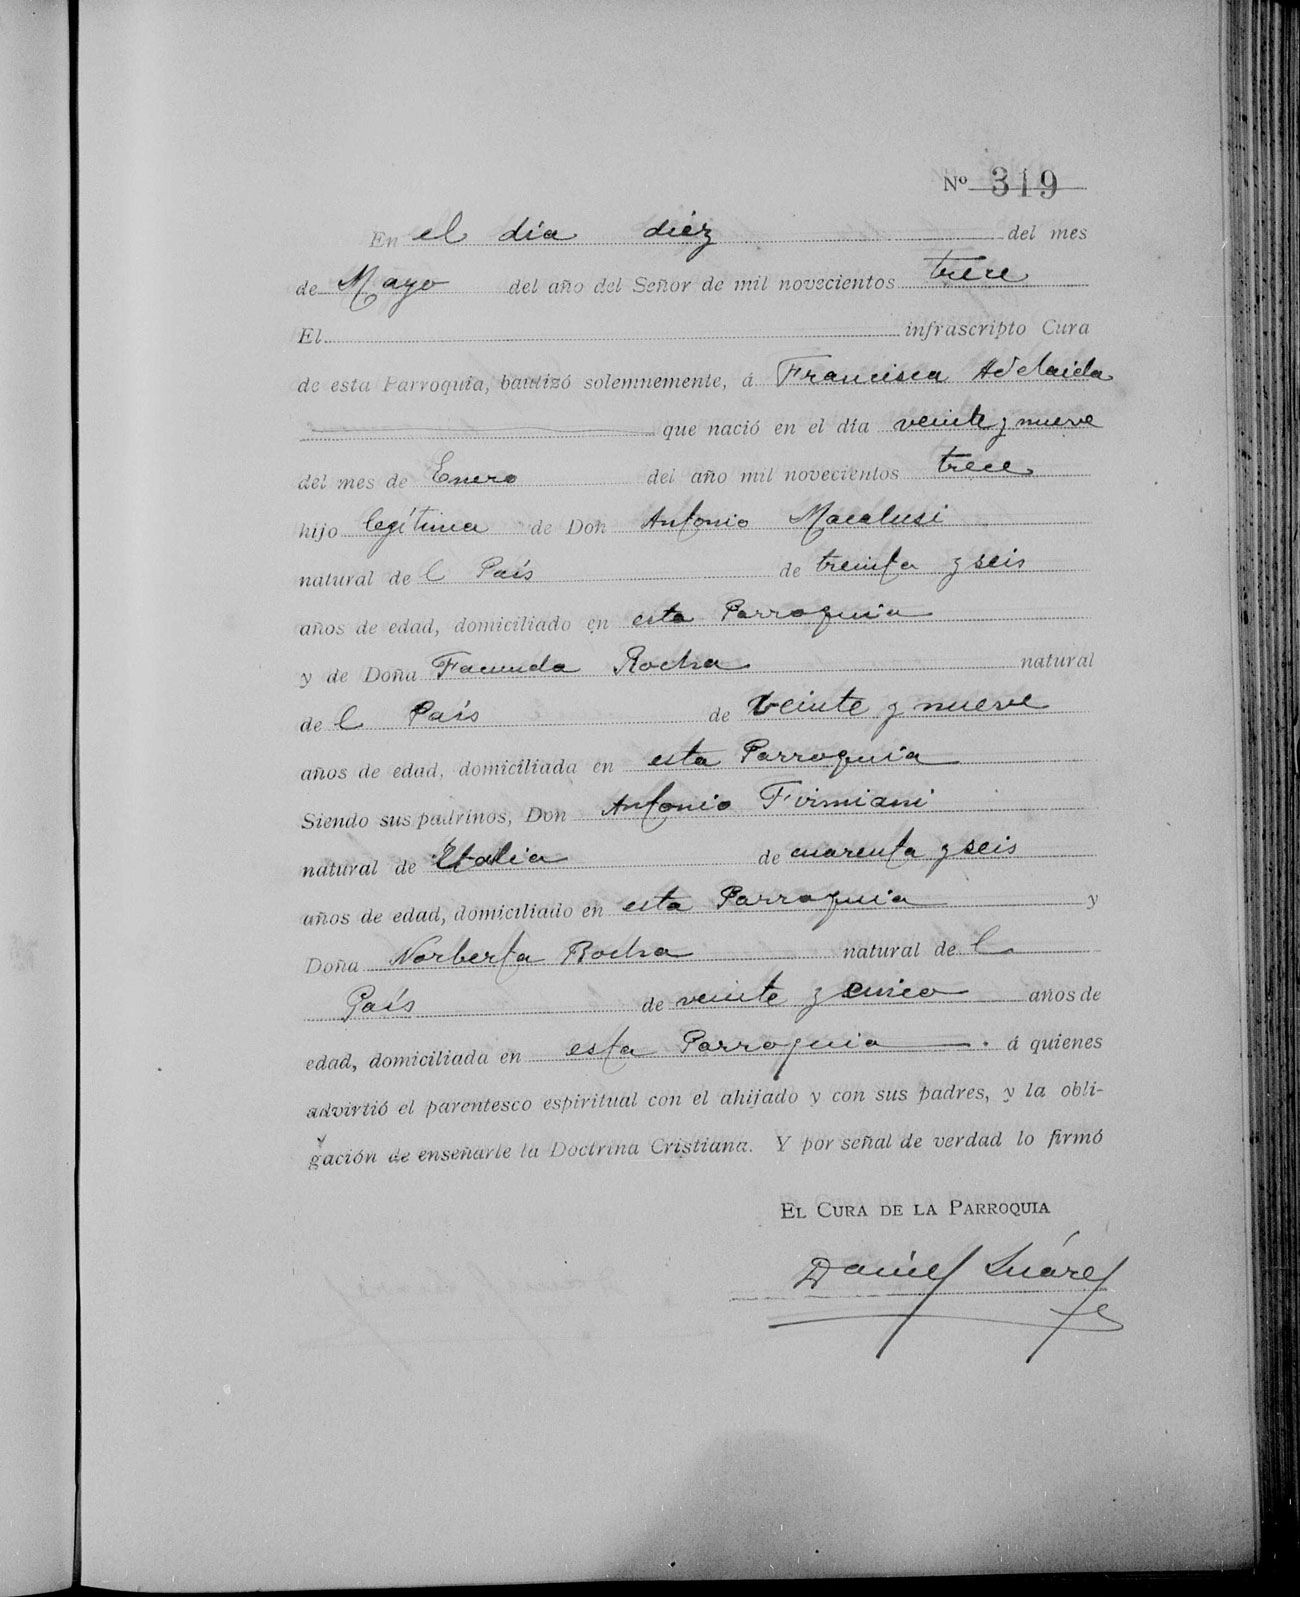 Nº 319
En el día diez del mes
de Mayo del año del Señor de mil novecientos trece
El infrascripto Cura
de esta Parroquia, bautizó solemnemente, á Francisca Adelaida
que nació en el día veinte y nueve
del mes de Enero del año mil novecientos trece
hijo legítima de Don Antonio Macalusi
natural de l País de treinta y seis
años de edad, domiciliado en esta Parroquia
y de Doña Facunda Rocha natural
de l País de veinte y nueve
años de edad, domiciliada en esta Parroquia
Siendo sus padrinos, Don Antonio Firmiani
natural de Italia de cuarenta y seis
años de edad, domiciliado en esta Parroquia y
Doña Norberta Rocha natural de l
País de veinte y cinco años de
edad, domiciliada en esta Parroquia. á quienes
advirtió el parentesco espiritual con el ahijado y con sus padres, y la obli-
gación de enseñarle la Doctrina Cristiana. Y por señal de verdad lo firmó
El Cura de la Parroquia
Daniel Suárez